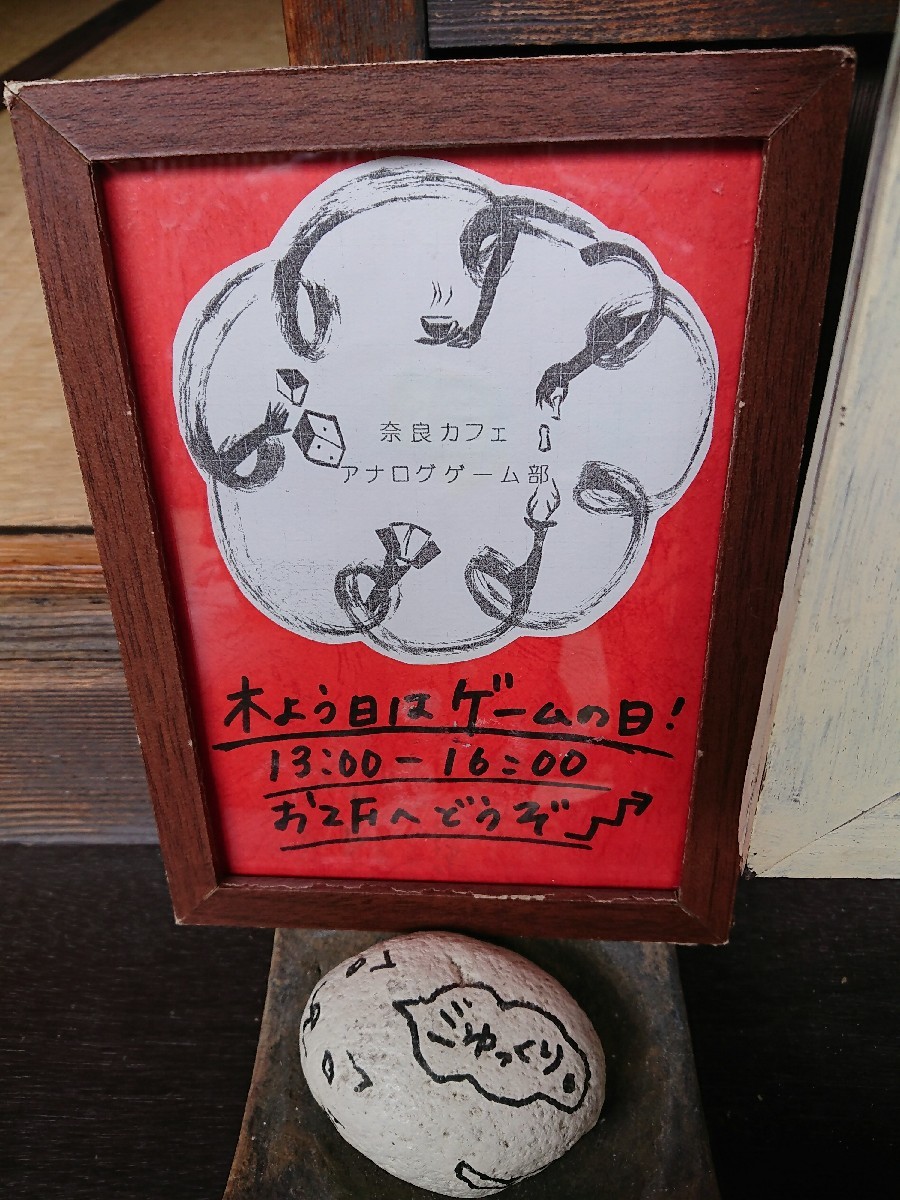 奈良カフェ
アナログゲーム部
木よう日はゲームの日!
13:00-16:00
お2Fへどうぞ
ごゆっくり。